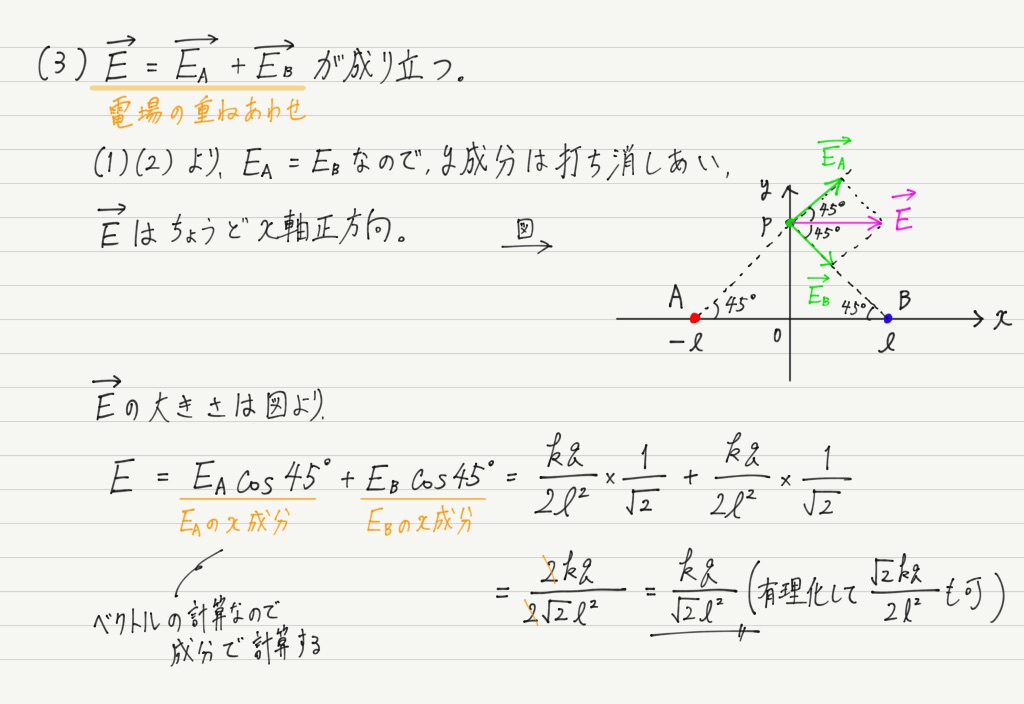 (3) E→ = E_A→ + E_B→ が成り立つ。
電場の重ねあわせ
(1)(2)より、E_A = E_B なので、y成分は打ち消しあい、
E→ はちょうどx軸正方向。
図
y
E_A→
P
45°
45°
E→
E_B→
A
45°
45°
B
-l
0
l
x
E→ の大きさは図より、
E = E_A cos45° + E_B cos45° = kq/2l² × 1/√2 + kq/2l² × 1/√2
E_Aのx成分
E_Bのx成分
= 2kq/2√2l² = kq/√2l² (有理化して √2kq/2l² も可)
ベクトルの計算なので
成分で計算する